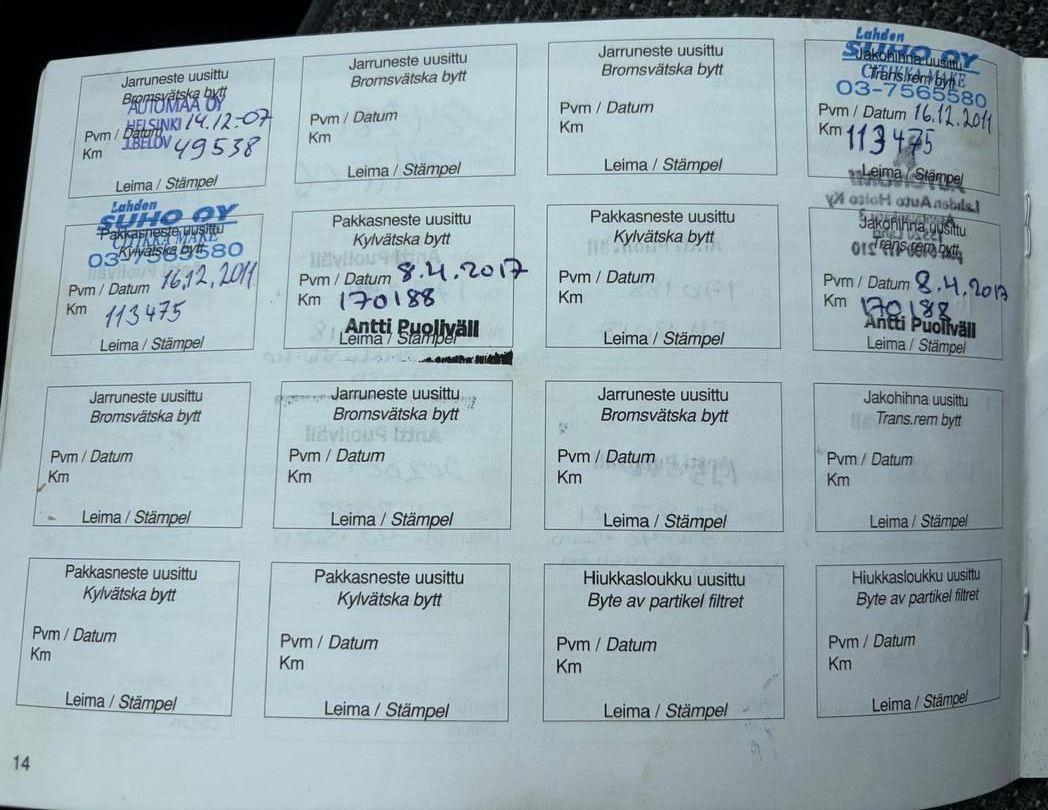 Jarruneste uusittu
Bromsvätska bytt
AUTOMAA OY
HELSINKI 14.12-07
Pvm / Datum
J.BELOV 49538
Km
Leima / Stämpel
Jarruneste uusittu
Bromsvätska bytt
Pvm / Datum
Km
Leima / Stämpel
Jarruneste uusittu
Bromsvätska bytt
Pvm / Datum
Km
Leima / Stämpel
Lahden
SUHO OY
Jakohihna uusittu
CITIKKA MAKE
Trans.rem bytt
03-7565580
Pvm / Datum 16.12.2011
Km 113475
Leima / Stämpel
Lahden
SUHO OY
Pakkasneste uusittu
CITIKKA MAKE
Kylvätska bytt
03-7565580
Pvm / Datum 16.12.2011
Km 113475
Leima / Stämpel
Pakkasneste uusittu
Kylvätska bytt
Pvm / Datum 8.4.2017
Km 170188
Antti Puoliväli
Leima / Stämpel
Pakkasneste uusittu
Kylvätska bytt
Pvm / Datum
Km
Leima / Stämpel
Lahden Auto Hoito Ky
Jakohihna uusittu
Trans.rem bytt
Pvm / Datum 8.4.2017
Km 170188
Antti Puoliväli
Leima / Stämpel
Jarruneste uusittu
Bromsvätska bytt
Pvm / Datum
Km
Leima / Stämpel
Jarruneste uusittu
Bromsvätska bytt
Antti Puoliväli
Pvm / Datum
Km
Leima / Stämpel
Jarruneste uusittu
Bromsvätska bytt
Pvm / Datum
Km
Leima / Stämpel
Jakohihna uusittu
Trans.rem bytt
Pvm / Datum
Km
Leima / Stämpel
Pakkasneste uusittu
Kylvätska bytt
Pvm / Datum
Km
Leima / Stämpel
Pakkasneste uusittu
Kylvätska bytt
Pvm / Datum
Km
Leima / Stämpel
Hiukkasloukku uusittu
Byte av partikel filtret
Pvm / Datum
Km
Leima / Stämpel
Hiukkasloukku uusittu
Byte av partikel filtret
Pvm / Datum
Km
Leima / Stämpel
14